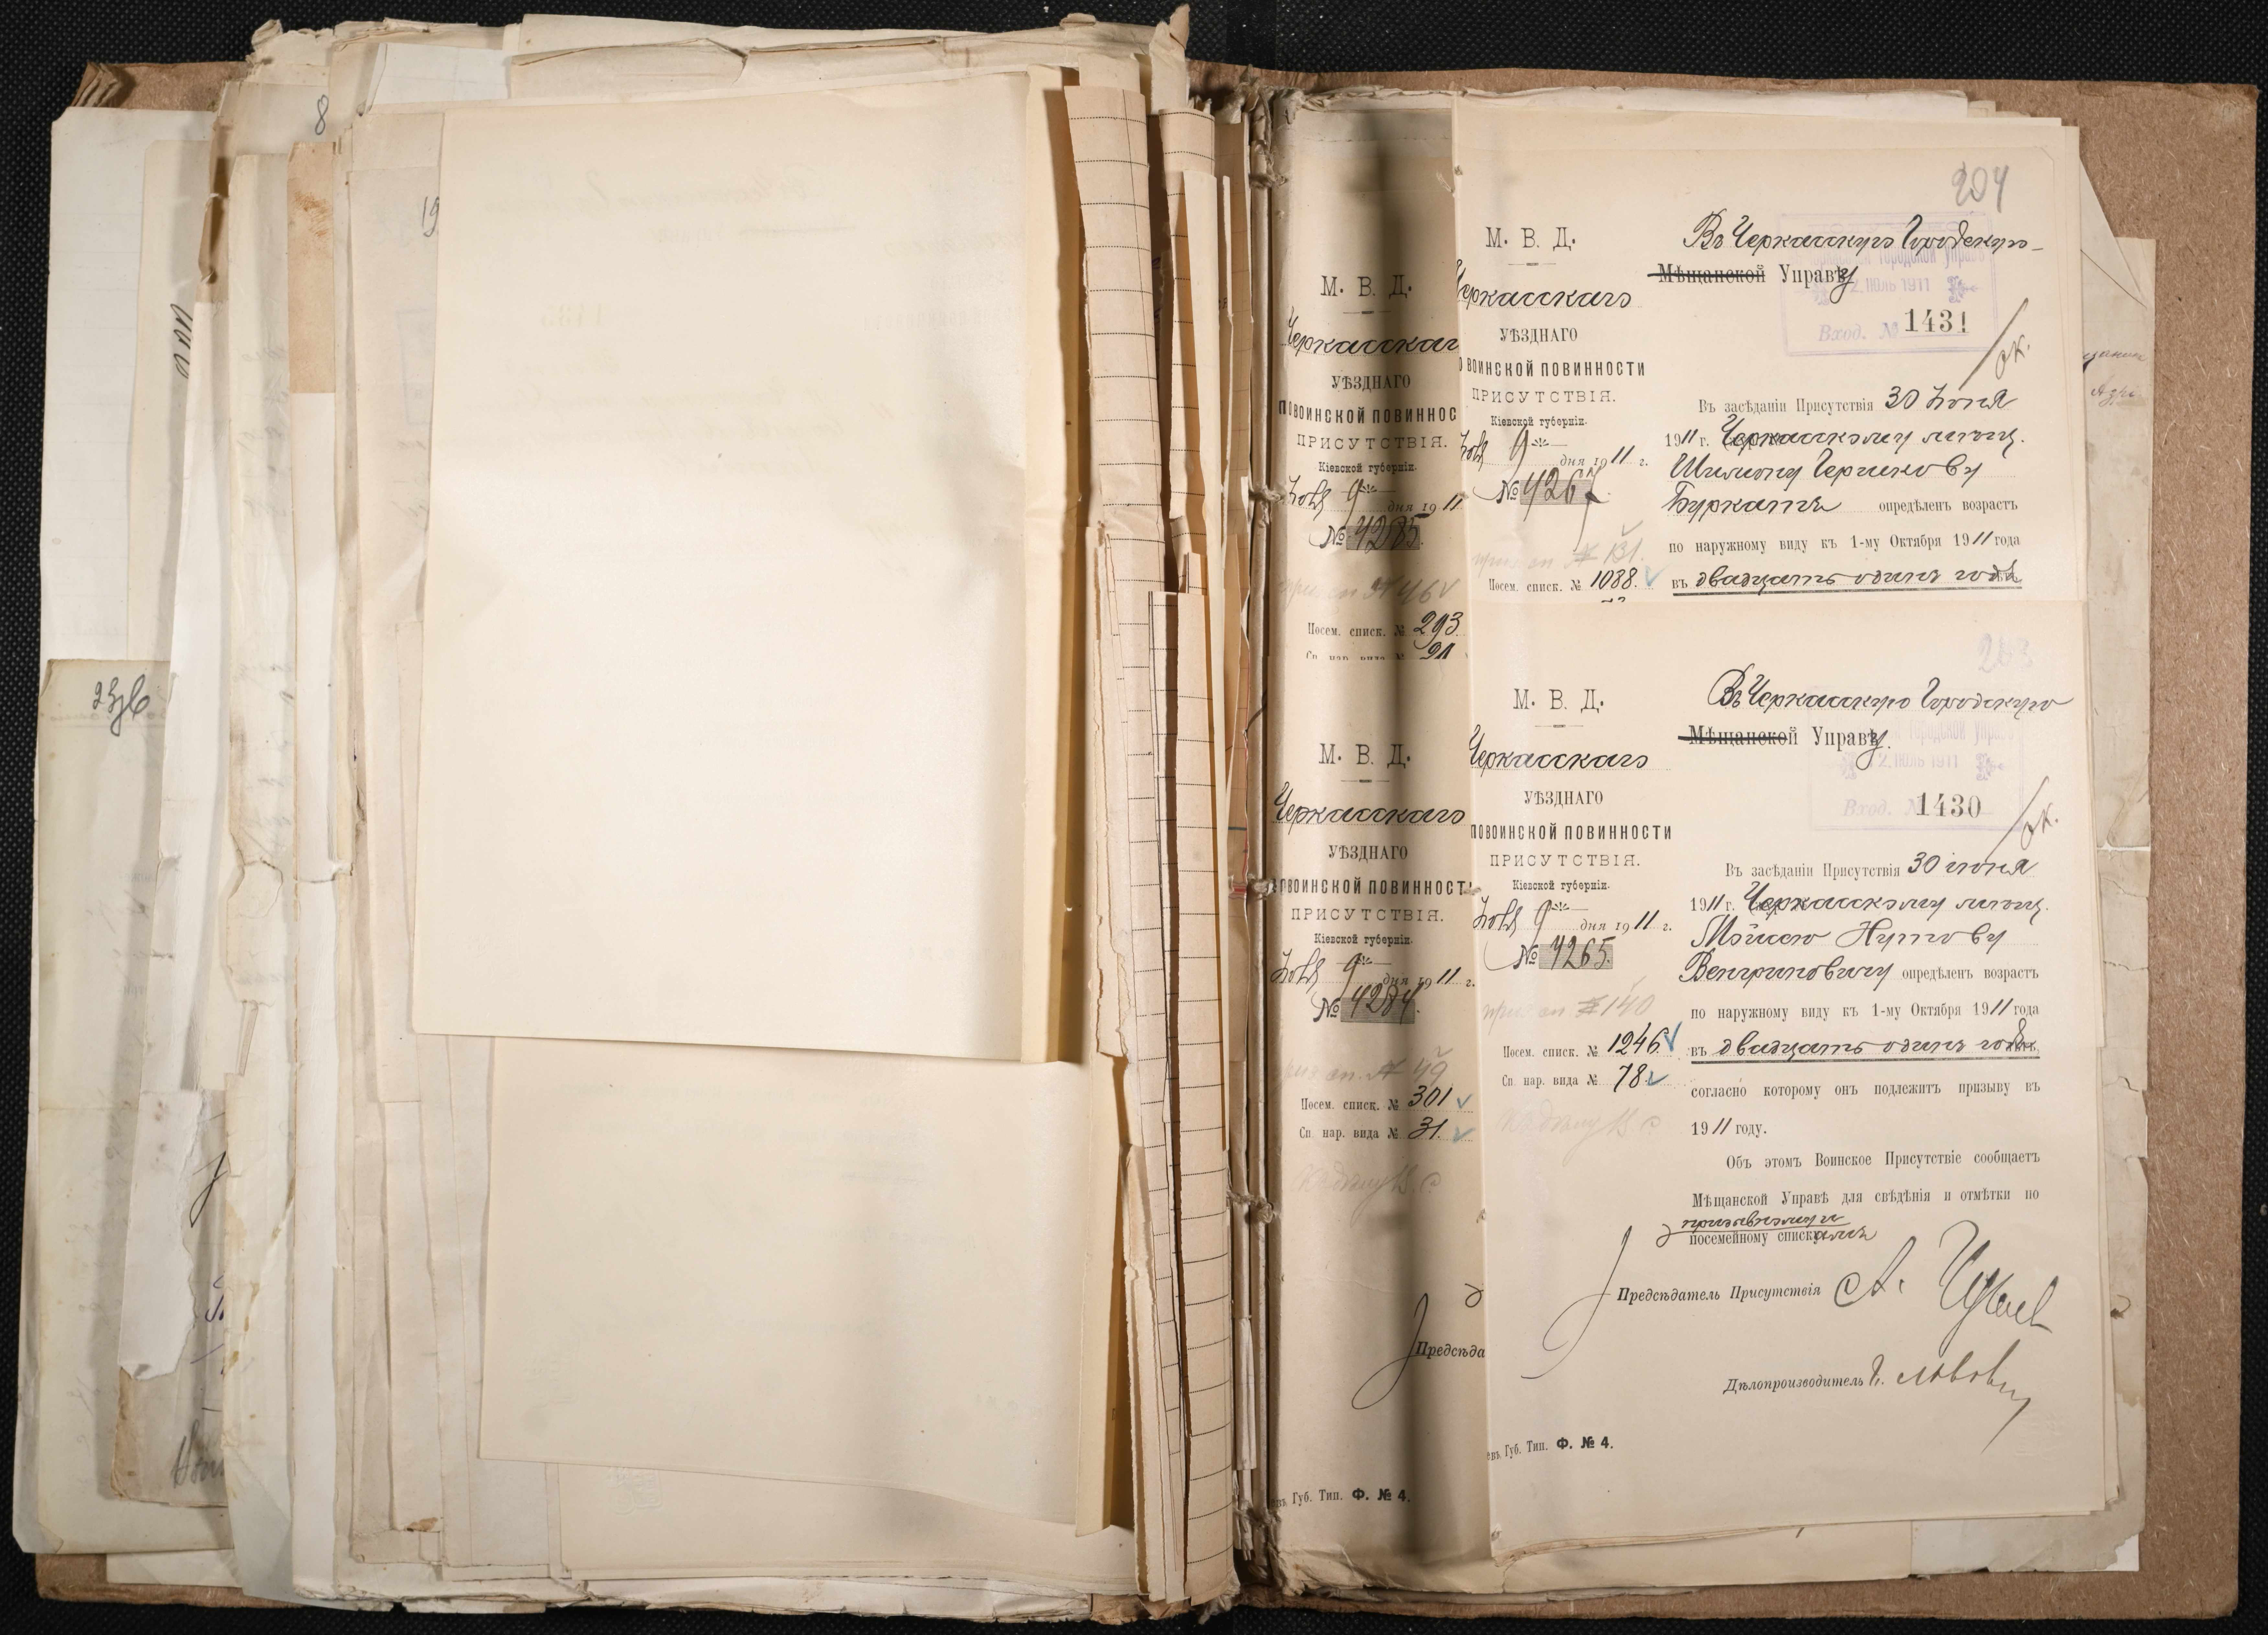 8
19
М. В. Д.
Черкасскаг
УѢЗДНАГО
ПОВОИНСКОЙ ПОВИННОС
ПРИСУТСТВІЯ.
Кіевской губерніи.
9 дня 1911
№ 4285.
46
Посем. списк. № 293
Сп. нар. вида №
М. В. Д.
Черкасскаго
УѢЗДНАГО
ПОВОИНСКОЙ ПОВИННОСТ
ПРИСУТСТВІЯ.
Кіевской губерніи.
9 дня 1911 г.
№ 4284.
49
Посем. списк. № 301
Сп. нар. вида № 31.
Предсѣда
Губ. Тип. Ф. № 4.
204
М. В. Д.
Черкасскаго
УѢЗДНАГО
О ВОИНСКОЙ ПОВИННОСТИ
ПРИСУТСТВІЯ.
Кіевской губерніи.
9 дня 1911 г.
№ 4267
131.
Посем. списк. № 1088.
Въ Черкасскую Городскую
Мѣщанской Управу
Городской Управ
2. ІЮЛЬ 1911
Вход. № 1431
Въ засѣданіи Присутствія 30 Іюня
1911 г. Черкасскому мѣщ.
Шимону Гершкову
Буркатъ опредѣленъ возрастъ
по наружному виду къ 1-му Октября 1911 года
въ двадцать одинъ годъ
203
М. В. Д.
Черкасскаго
УѢЗДНАГО
ПОВОИНСКОЙ ПОВИННОСТИ
ПРИСУТСТВІЯ.
Кіевской губерніи.
9 дня 1911 г.
№ 4265.
140
Посем. списк. № 1246.
Сп. нар. вида № 78.
Въ Черкасскую Городскую
Мѣщанской Управу.
Городской Управ
2. ІЮЛЬ 1911
Вход. № 1430
Въ засѣданіи Присутствія 30 іюня
1911 г. Черкасскому мѣщ.
Мойсею Нутову
Венгриновичу опредѣленъ возрастъ
по наружному виду къ 1-му Октября 1911 года
въ двадцать одинъ годъ
согласно которому онъ подлежитъ призыву въ
1911 году.
Объ этомъ Воинское Присутствіе сообщаетъ
Мѣщанской Управѣ для свѣдѣнія и отмѣтки по
призывному и
посемейному спискамъ
Предсѣдатель Присутствія А.
Дѣлопроизводитель
евъ. Губ. Тип. Ф. № 4.